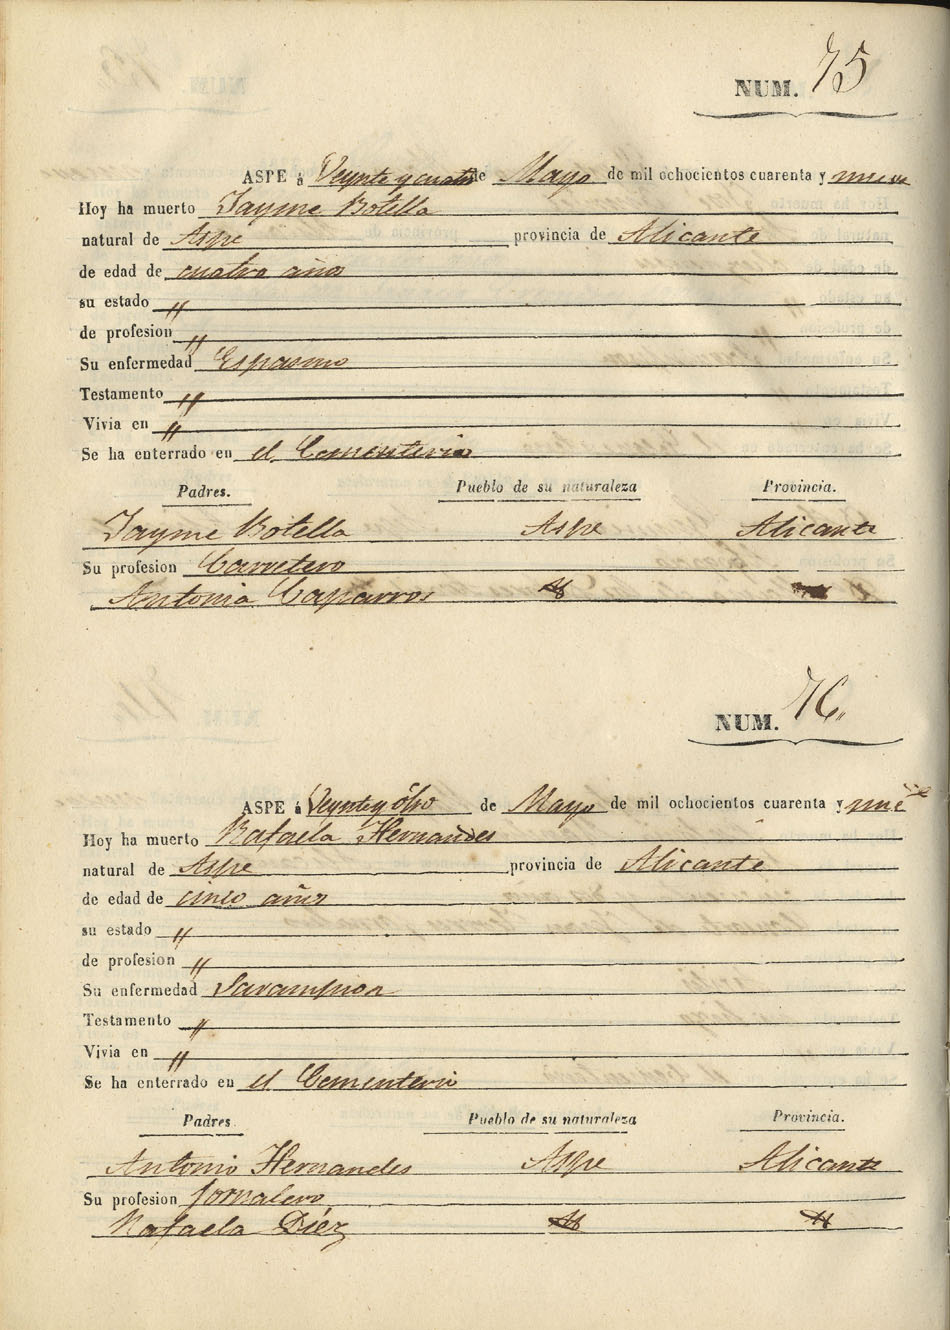 NUM. 75
ASPE á Veynte y cuatro de Mayo de mil ochocientos cuarenta y nueve
Hoy ha muerto Jayme Botella
natural de Aspe provincia de Alicante
de edad de cuatro año
su estado "
de profesion "
Su enfermedad Espasmo
Testamento "
Vivia en "
Se ha enterrado en el Cementerio
Padres. Pueblo de su naturaleza Provincia.
Jayme Botella Aspe Alicante
Su profesion Carretero
Antonia Caparros
NUM. 76
ASPE á Veynte y ôho de Mayo de mil ochocientos cuarenta y nueve
Hoy ha muerto Rafaela Hernandes
natural de Aspe provincia de Alicante
de edad de cinco años
su estado "
de profesion "
Su enfermedad Sarampion
Testamento "
Vivia en "
Se ha enterrado en el Cementeri
Padres. Pueblo de su naturaleza Provincia.
Antonio Hernandes Aspe Alicante
Su profesion Jornalero
Rafaela Diéz